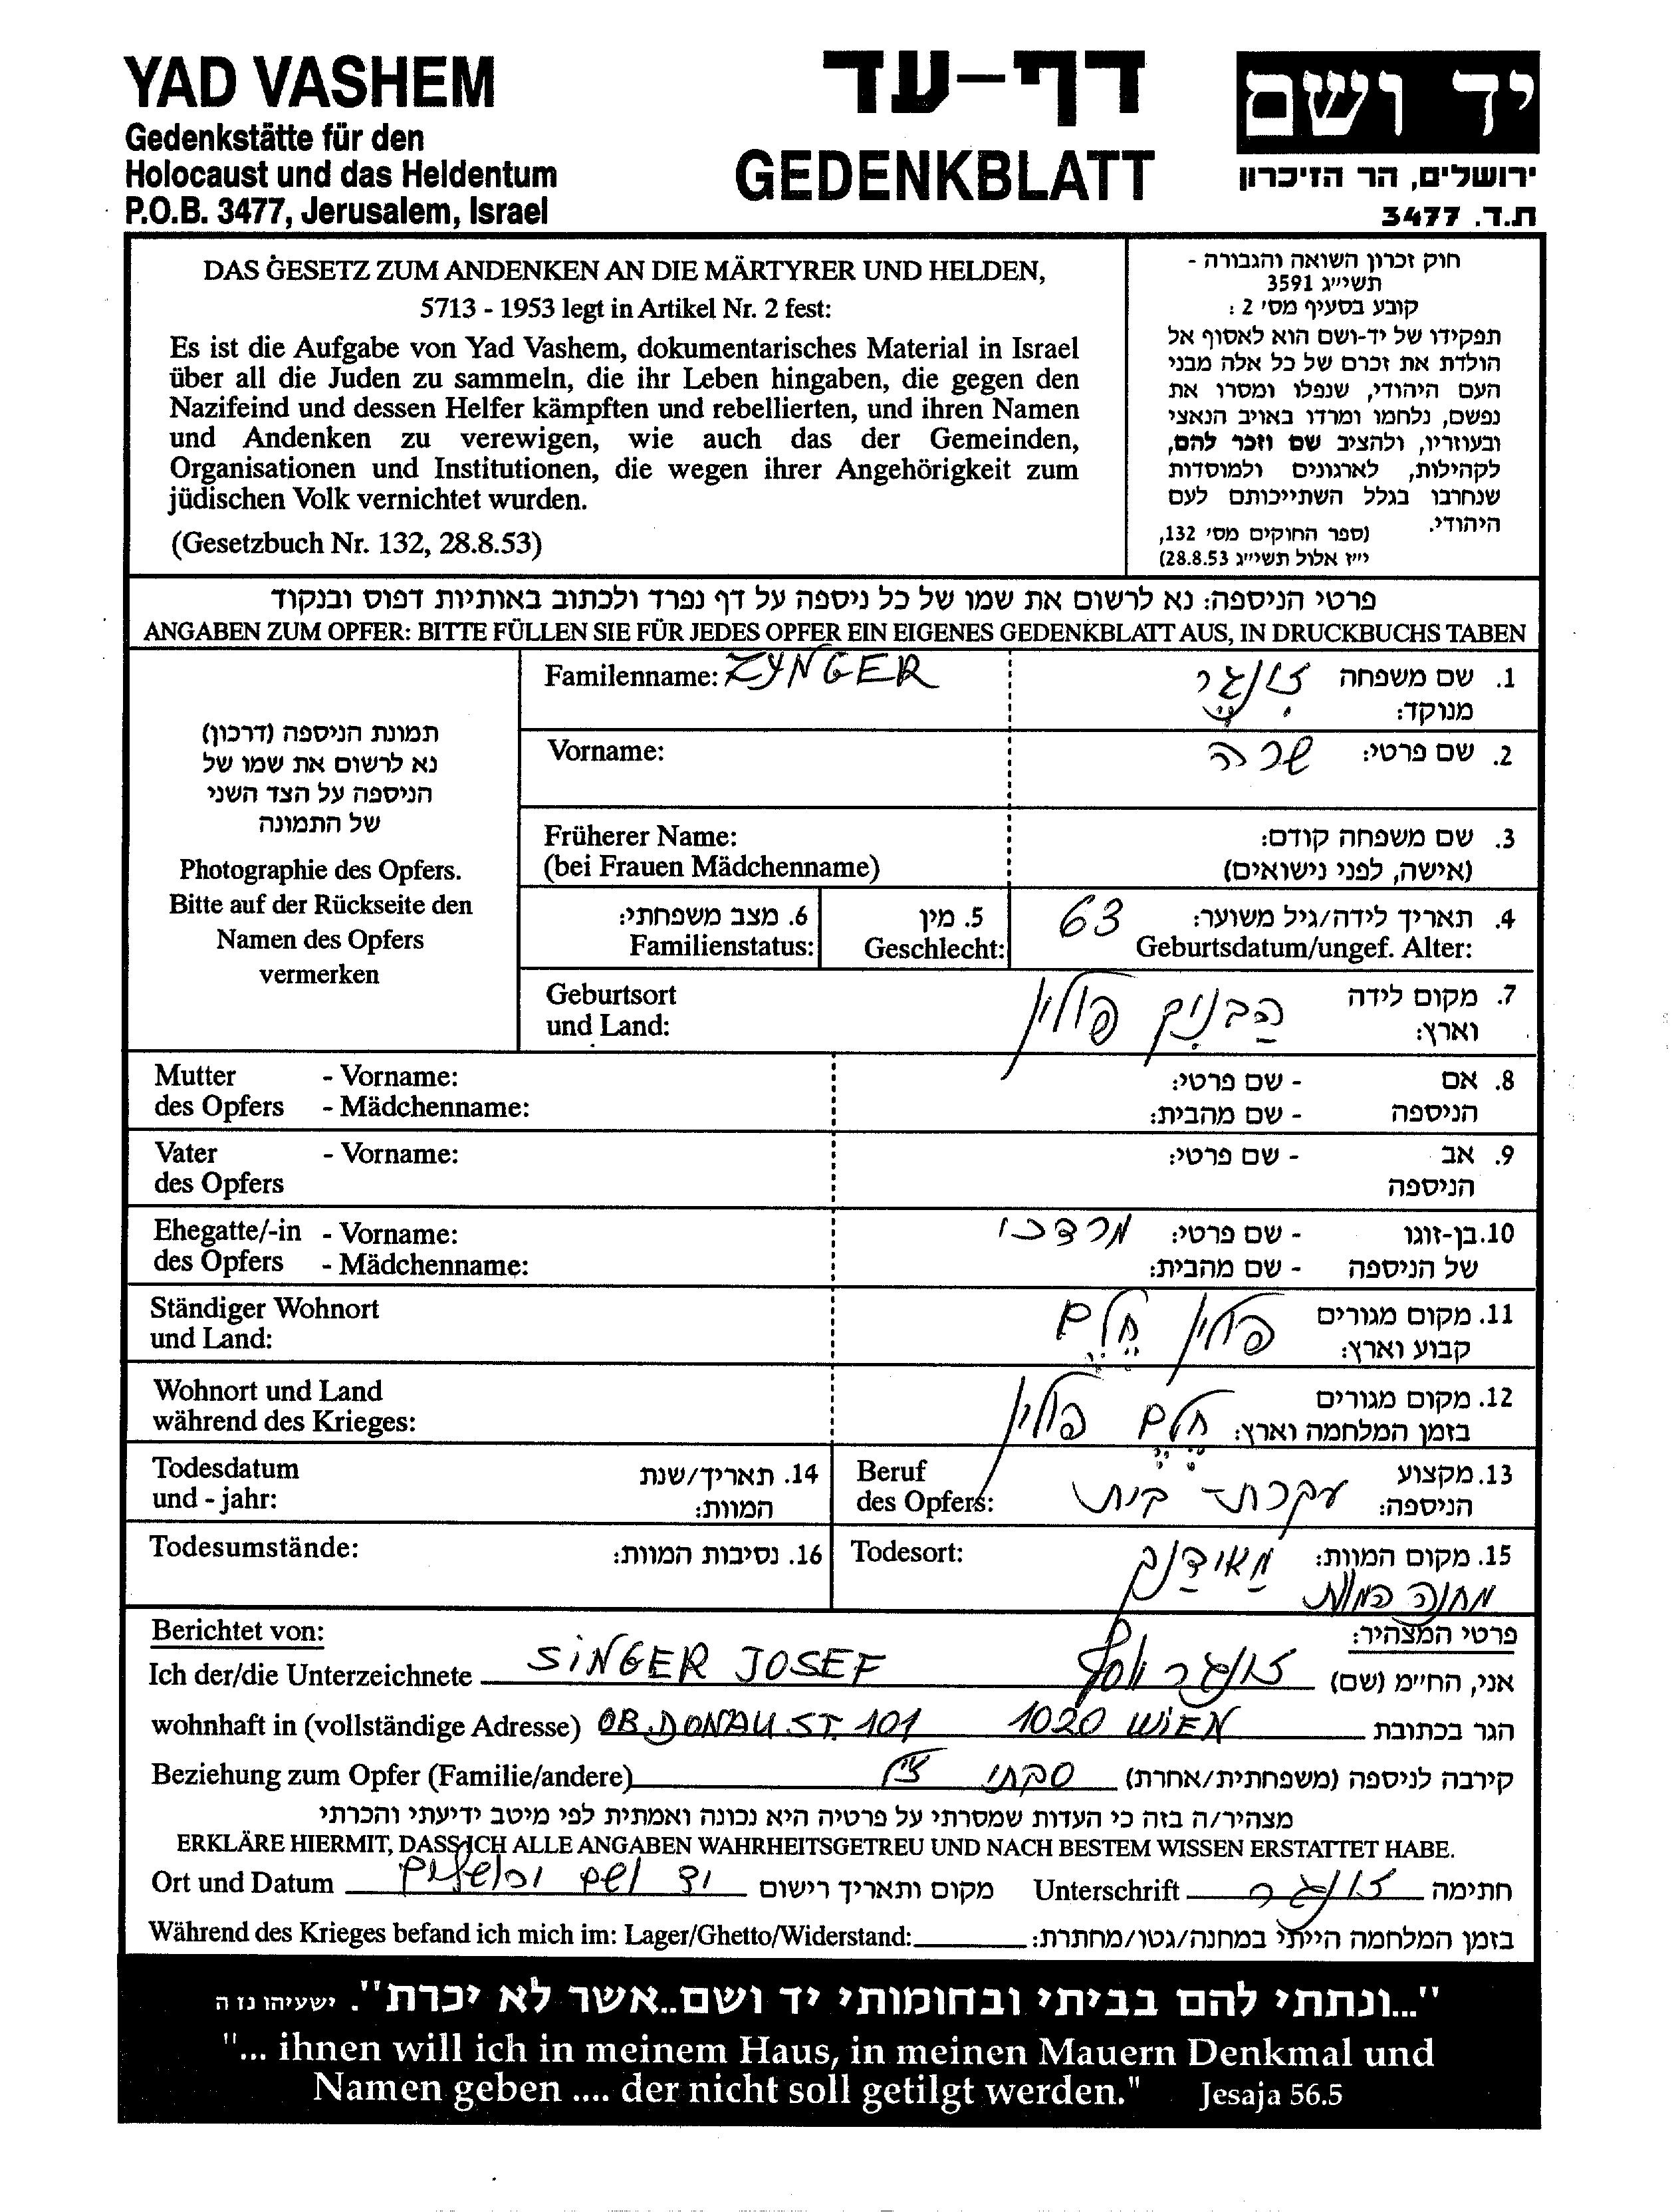 YAD VASHEM
Gedenkstätte für den
Holocaust und das Heldentum
P.O.B. 3477, Jerusalem, Israel
דף-עד
GEDENKBLATT
יד ושם
ירושלים, הר הזיכרון
ת.ד. 3477
DAS GESETZ ZUM ANDENKEN AN DIE MÄRTYRER UND HELDEN,
5713 - 1953 legt in Artikel Nr. 2 fest:
Es ist die Aufgabe von Yad Vashem, dokumentarisches Material in Israel
über all die Juden zu sammeln, die ihr Leben hingaben, die gegen den
Nazifeind und dessen Helfer kämpften und rebellierten, und ihren Namen
und Andenken zu verewigen, wie auch das der Gemeinden,
Organisationen und Institutionen, die wegen ihrer Angehörigkeit zum
jüdischen Volk vernichtet wurden.
(Gesetzbuch Nr. 132, 28.8.53)
חוק זכרון השואה והגבורה -
תשי״ג 3591
קובע בסעיף מס׳ 2 :
תפקידו של יד-ושם הוא לאסוף אל
הולדת את זכרם של כל אלה מבני
העם היהודי, שנפלו ומסרו את
נפשם, נלחמו ומרדו באויב הנאצי
ובעוזריו, ולהציב שם וזכר להם,
לקהילות, לארגונים ולמוסדות
שנחרבו בגלל השתייכותם לעם
היהודי.
(ספר החוקים מס׳ 132,
י״ז אלול תשי״ג 28.8.53)
פרטי הניספה: נא לרשום את שמו של כל ניספה על דף נפרד ולכתוב באותיות דפוס ובנקוד
ANGABEN ZUM OPFER: BITTE FÜLLEN SIE FÜR JEDES OPFER EIN EIGENES GEDENKBLATT AUS, IN DRUCKBUCHS TABEN
תמונת הניספה (דרכון)
נא לרשום את שמו של
הניספה על הצד השני
של התמונה
Photographie des Opfers.
Bitte auf der Rückseite den
Namen des Opfers
vermerken
Familenname: ZYNGER
1. שם משפחה זינגר
מנוקד:
Vorname:
2. שם פרטי: שרה
Früherer Name:
(bei Frauen Mädchenname)
3. שם משפחה קודם:
(אישה, לפני נישואים)
4. תאריך לידה/גיל משוער: 63
Geburtsdatum/ungef. Alter:
5. מין
Geschlecht:
6. מצב משפחתי:
Familienstatus:
Geburtsort
und Land:
7. מקום לידה
וארץ: פולין
Mutter - Vorname:
des Opfers - Mädchenname:
8. אם - שם פרטי:
הניספה - שם מהבית:
Vater - Vorname:
des Opfers
9. אב - שם פרטי:
הניספה
Ehegatte/-in - Vorname:
des Opfers - Mädchenname:
10. בן-זוגו - שם פרטי: מרדכי
של הניספה - שם מהבית:
Ständiger Wohnort
und Land:
11. מקום מגורים
קבוע וארץ: פולין חלם
Wohnort und Land
während des Krieges:
12. מקום מגורים
בזמן המלחמה וארץ: חלם פולין
Todesdatum
und - jahr:
14. תאריך/שנת
המוות:
Beruf
des Opfers:
13. מקצוע
הניספה: עקרת-בית
Todesumstände:
16. נסיבות המוות:
Todesort:
15. מקום המוות: מאידנק
מחנה המוות
Berichtet von:
פרטי המצהיר:
Ich der/die Unterzeichnete SINGER JOSEF
אני, החי״מ (שם) זינגר יוסף
wohnhaft in (vollständige Adresse) OB.DONAU ST. 101 1020 WIEN הגר בכתובת
Beziehung zum Opfer (Familie/andere) קירבה לניספה (משפחתית/אחרת) סבתי
מצהיר/ה בזה כי העדות שמסרתי על פרטיה היא נכונה ואמתית לפי מיטב ידיעתי והכרתי
ERKLÄRE HIERMIT, DASS ICH ALLE ANGABEN WAHRHEITSGETREU UND NACH BESTEM WISSEN ERSTATTET HABE.
Ort und Datum מקום ותאריך רישום יד ושם ירושלים
Unterschrift חתימה זינגר
Während des Krieges befand ich mich im: Lager/Ghetto/Widerstand: בזמן המלחמה הייתי במחנה/גטו/מחתרת:
"...ונתתי להם בביתי ובחומותי יד ושם..אשר לא יכרת". ישעיהו נז ה
"... ihnen will ich in meinem Haus, in meinen Mauern Denkmal und
Namen geben .... der nicht soll getilgt werden." Jesaja 56.5